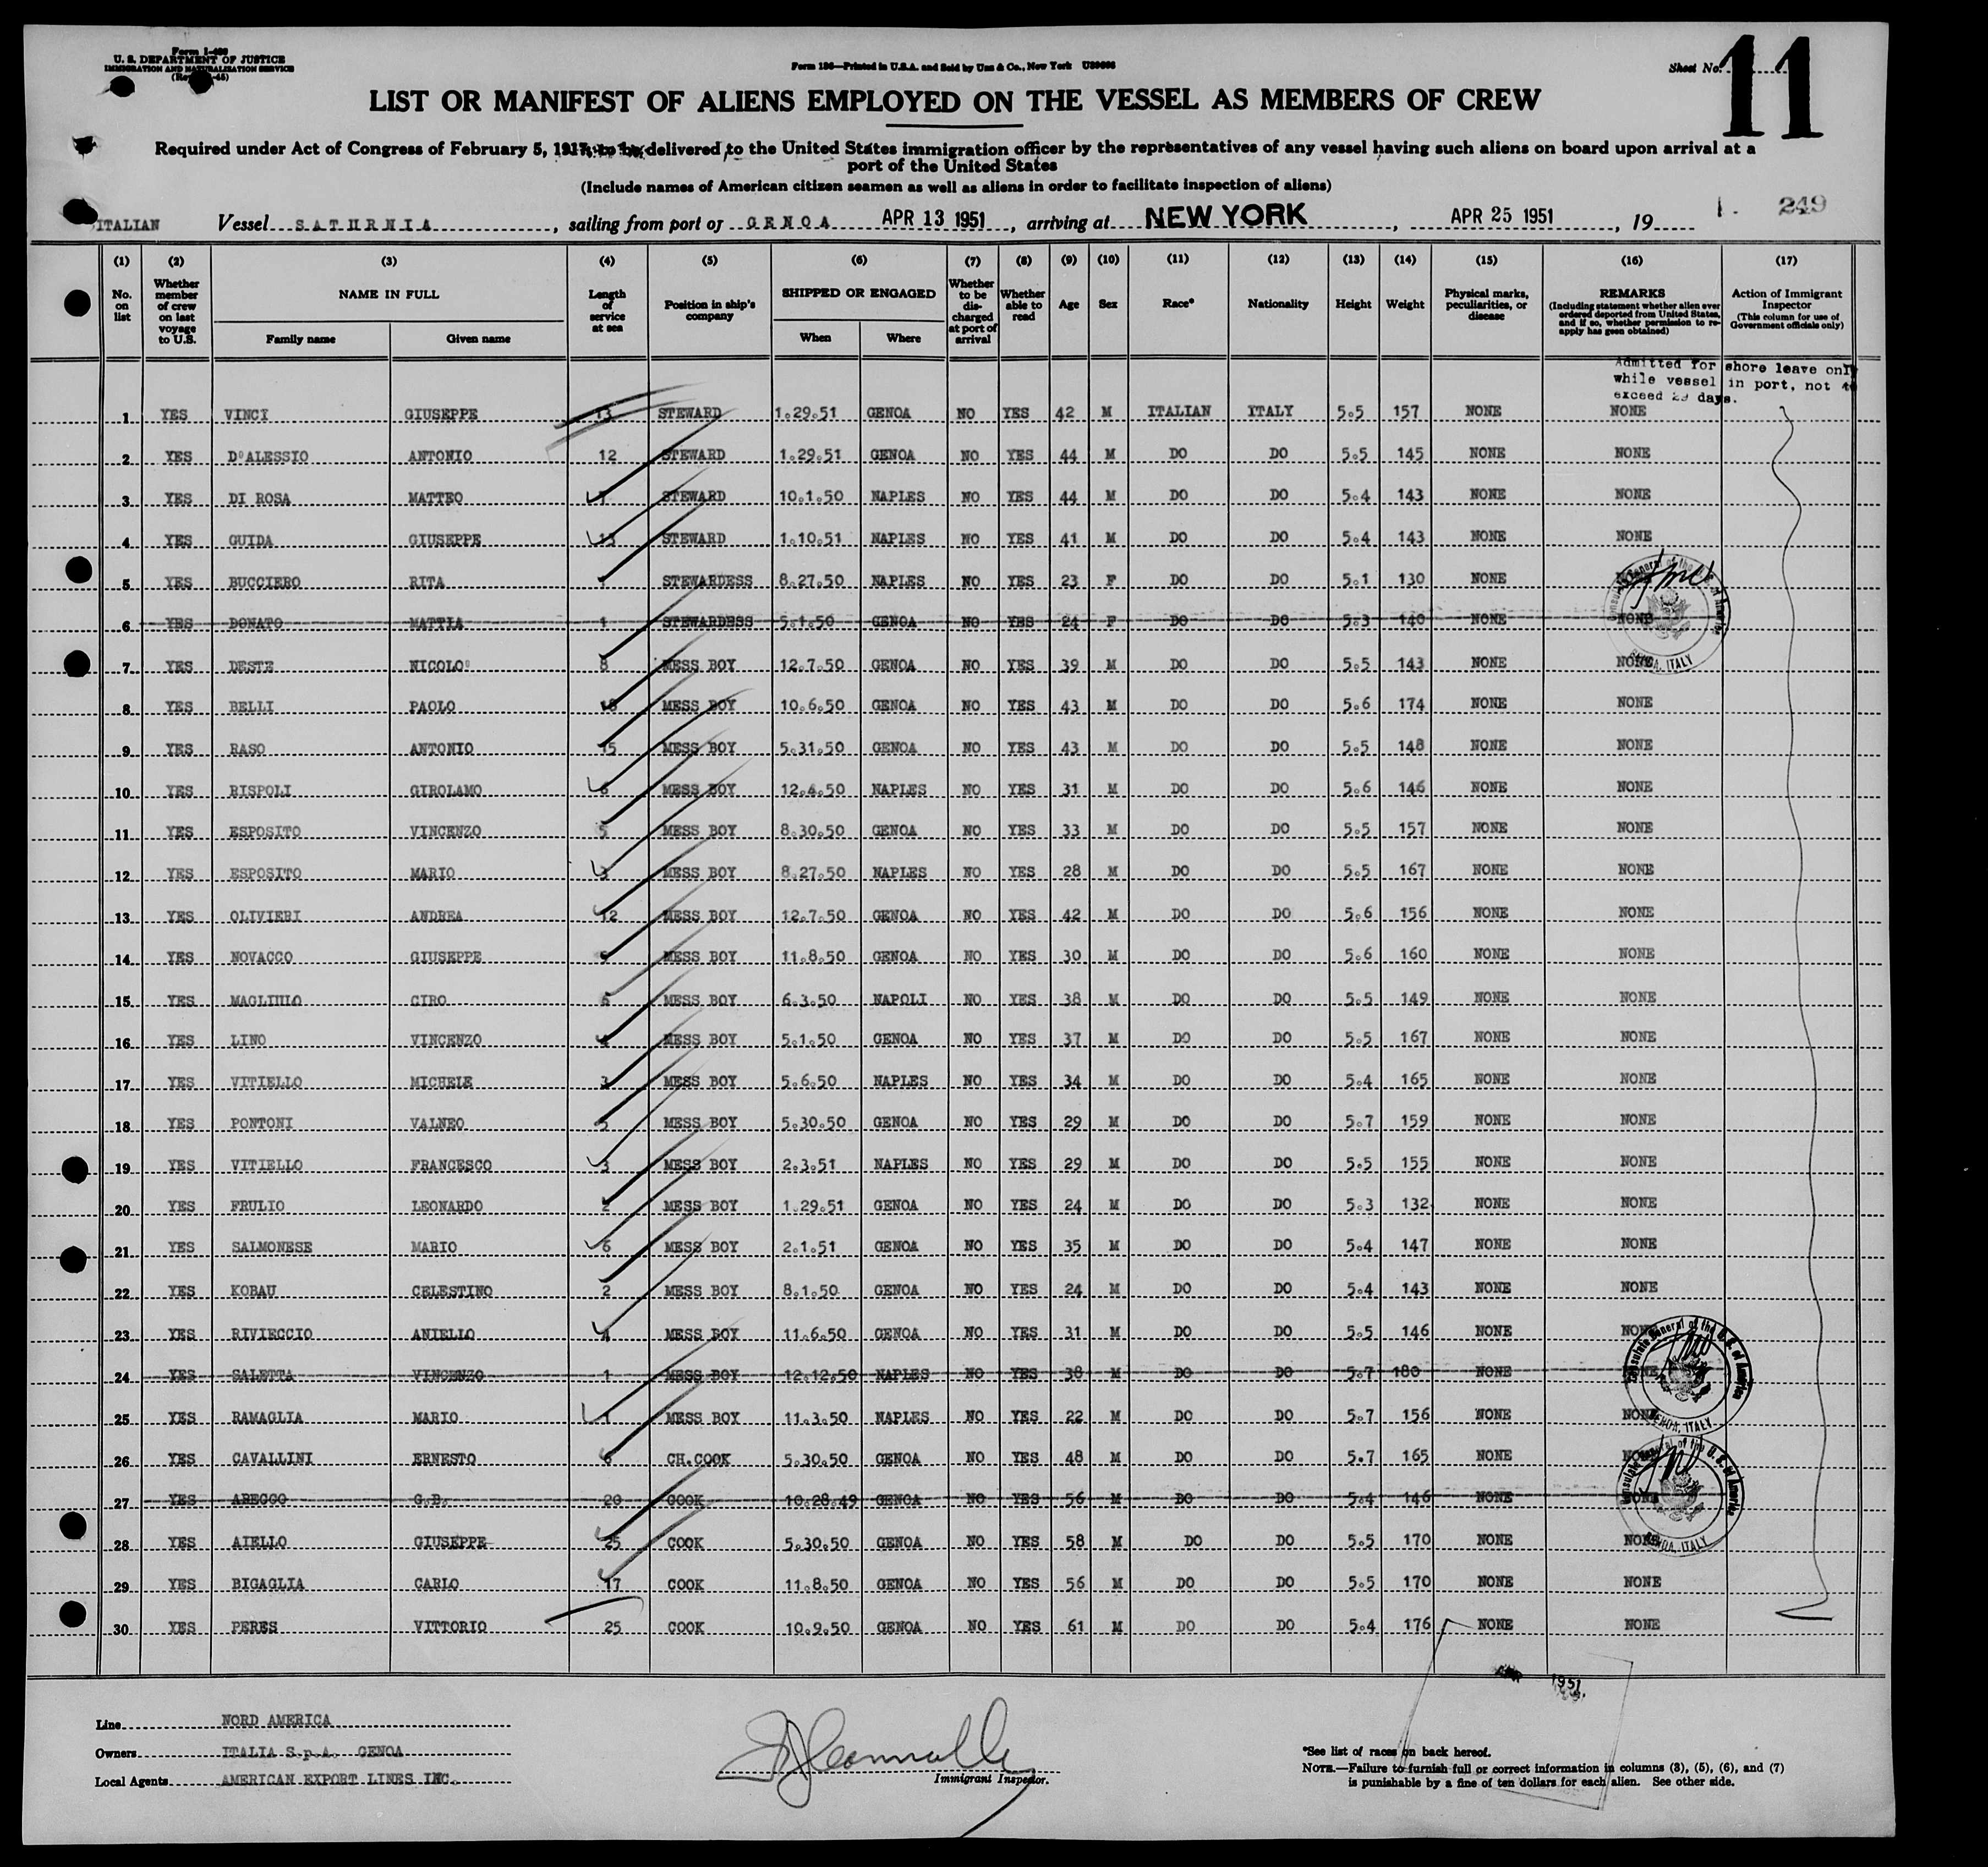 Form I-480
U. S. DEPARTMENT OF JUSTICE
IMMIGRATION AND NATURALIZATION SERVICE
Form 186—Printed in U.S.A. and Sold by Unz & Co., New York
Sheet No. 11
LIST OR MANIFEST OF ALIENS EMPLOYED ON THE VESSEL AS MEMBERS OF CREW
Required under Act of Congress of February 5, 1917, to be delivered to the United States immigration officer by the representatives of any vessel having such aliens on board upon arrival at a
port of the United States
(Include names of American citizen seamen as well as aliens in order to facilitate inspection of aliens)
ITALIAN Vessel SATURNIA, sailing from port of GENOA APR 13 1951, arriving at NEW YORK, APR 25 1951, 19 249
(1) (2) (3) (4) (5) (6) (7) (8) (9) (10) (11) (12) (13) (14) (15) (16) (17)
No. on list Whether member of crew on last voyage to U.S. NAME IN FULL Length of service at sea Position in ship's company SHIPPED OR ENGAGED Whether to be discharged at port of arrival Whether able to read Age Sex Race* Nationality Height Weight Physical marks, peculiarities, or disease REMARKS (Including statement whether alien ever ordered deported from United States, and if so, whether permission to re-apply has geen obtained) Action of Immigrant Inspector (This column for use of Government officials only)
Family name Given name When Where
Admitted for shore leave only
while vessel in port, not to
exceed 29 days.
1 YES VINCI GIUSEPPE 13 STEWARD 1.29.51 GENOA NO YES 42 M ITALIAN ITALY 5.5 157 NONE NONE
2 YES D'ALESSIO ANTONIO 12 STEWARD 1.29.51 GENOA NO YES 44 M DO DO 5.5 145 NONE NONE
3 YES DI ROSA MATTEO STEWARD 10.1.50 NAPLES NO YES 44 M DO DO 5.4 143 NONE NONE
4 YES GUIDA GIUSEPPE 13 STEWARD 1.10.51 NAPLES NO YES 41 M DO DO 5.4 143 NONE NONE
5 YES BUCCIERO RITA STEWARDESS 8.27.50 NAPLES NO YES 23 F DO DO 5.1 130 NONE
6 YES DONATO MATTIA 1 STEWARDESS 5.1.50 GENOA NO YES 24 F DO DO 5.3 140 NONE NONE
7 YES DESTE NICOLO' 8 MESS BOY 12.7.50 GENOA NO YES 39 M DO DO 5.5 143 NONE NONE
8 YES BELLI PAOLO 18 MESS BOY 10.6.50 GENOA NO YES 43 M DO DO 5.6 174 NONE NONE
9 YES RASO ANTONIO 15 MESS BOY 5.31.50 GENOA NO YES 43 M DO DO 5.5 148 NONE NONE
10 YES RISPOLI GIROLAMO 6 MESS BOY 12.4.50 NAPLES NO YES 31 M DO DO 5.6 146 NONE NONE
11 YES ESPOSITO VINCENZO 5 MESS BOY 8.30.50 GENOA NO YES 33 M DO DO 5.5 157 NONE NONE
12 YES ESPOSITO MARIO 3 MESS BOY 8.27.50 NAPLES NO YES 28 M DO DO 5.5 167 NONE NONE
13 YES OLIVIERI ANDREA 12 MESS BOY 12.7.50 GENOA NO YES 42 M DO DO 5.6 156 NONE NONE
14 YES NOVACCO GIUSEPPE MESS BOY 11.8.50 GENOA NO YES 30 M DO DO 5.6 160 NONE NONE
15 YES MAGLIULO CIRO 6 MESS BOY 6.3.50 NAPOLI NO YES 38 M DO DO 5.5 149 NONE NONE
16 YES LINO VINCENZO 4 MESS BOY 5.1.50 GENOA NO YES 37 M DO DO 5.5 167 NONE NONE
17 YES VITIELLO MICHELE 3 MESS BOY 5.6.50 NAPLES NO YES 34 M DO DO 5.4 165 NONE NONE
18 YES PONTONI VALNEO 5 MESS BOY 5.30.50 GENOA NO YES 29 M DO DO 5.7 159 NONE NONE
19 YES VITIELLO FRANCESCO 3 MESS BOY 2.3.51 NAPLES NO YES 29 M DO DO 5.5 155 NONE NONE
20 YES FRULIO LEONARDO 2 MESS BOY 1.29.51 GENOA NO YES 24 M DO DO 5.3 132 NONE NONE
21 YES SALMONESE MARIO 6 MESS BOY 2.1.51 GENOA NO YES 35 M DO DO 5.4 147 NONE NONE
22 YES KOBAU CELESTINO 2 MESS BOY 8.1.50 GENOA NO YES 24 M DO DO 5.4 143 NONE NONE
23 YES RIVIECCIO ANIELLO 4 MESS BOY 11.6.50 GENOA NO YES 31 M DO DO 5.5 146 NONE NONE
24 YES SALETTA VINCENZO 1 MESS BOY 12.12.50 NAPLES NO YES 38 M DO DO 5.7 180 NONE NONE
25 YES RAMAGLIA MARIO 1 MESS BOY 11.3.50 NAPLES NO YES 22 M DO DO 5.7 156 NONE NONE
26 YES CAVALLINI ERNESTO 6 CH.COOK 5.30.50 GENOA NO YES 48 M DO DO 5.7 165 NONE NONE
27 YES ARECCO G.B. 20 COOK 10.28.49 GENOA NO YES 56 M DO DO 5.4 146 NONE NONE
28 YES AIELLO GIUSEPPE 25 COOK 5.30.50 GENOA NO YES 58 M DO DO 5.5 170 NONE NONE
29 YES BIGAGLIA CARLO 17 COOK 11.8.50 GENOA NO YES 56 M DO DO 5.5 170 NONE NONE
30 YES PERES VITTORIO 25 COOK 10.9.50 GENOA NO YES 61 M DO DO 5.4 176 NONE NONE
Consulate General of the U. S. of America GENOA, ITALY
Consulate General of the U. S. of America GENOA, ITALY
Consulate General of the U. S. of America GENOA, ITALY
1951
Line NORD AMERICA
Owners ITALIA S.p.A. GENOA
Local Agents AMERICAN EXPORT LINES INC.
Immigrant Inspector.
*See list of races on back hereof.
NOTE.—Failure to furnish full or correct information in columns (3), (5), (6), and (7)
is punishable by a fine of ten dollars for each alien. See other side.